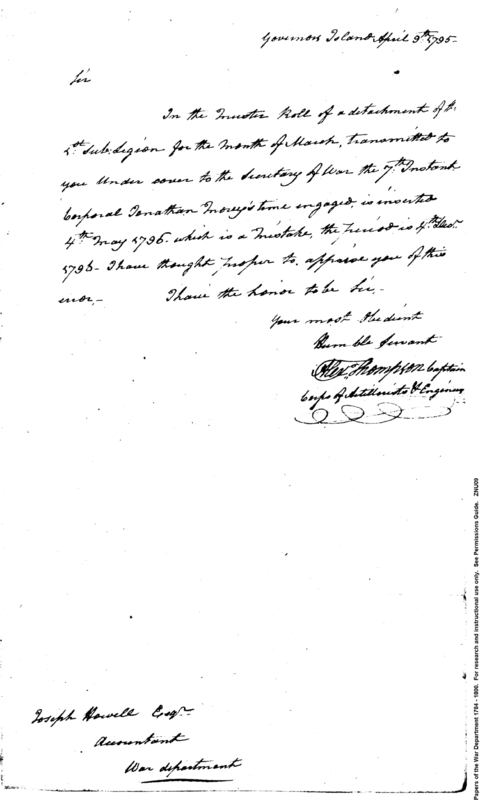 Governors Island April 9th. 1795-
Sir
In the Muster Roll of a detachment of the
1st. Sub. Legion for the Month of March, transmitted to
you Under cover to the Secretary of War the 7th. Instant
Corporal Jonathan Morey's time engaged, is inserted
4th May 1796. which is a Mistake, the period is 4th. Decr.
1795- I have thought proper to, apprise you of this
error.- I have the honor to be Sir.-
Your most Obedient
Humble Servant
Alexr. Thompson Captain
Corps of Artillerists & Engineers
Joseph Howell Esqr.
Accountant
War department
Papers of the War Department 1784 - 1800. For research and instructional use only. See Permissions Guide. ZNU09